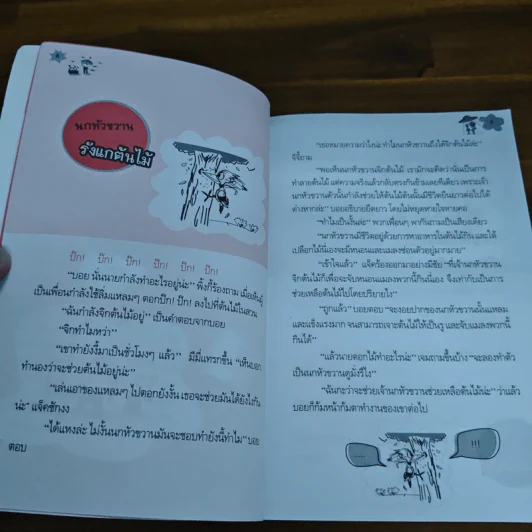 นกหัวขวาน
รังแกต้นไม้
ปั๊ก! ปั๊ก! ปั๊ก! ปั๊ก! ปั๊ก! ปั๊ก!
"บอย นั่นนายกำลังทำอะไรอยู่น่ะ" พึ่งกี้ร้องถาม เมื่อเห็น
เป็นเพื่อนกำลังใช้ลิ่มแหลมๆ ตอกปั๊ก! ปั๊ก! ลงไปที่ต้นไม้ในสวน
"ฉันกำลังจิกต้นไม้อยู่" เป็นคำตอบจากบอย
"จิกทำไมหว่า"
"เขาทำยังงี้มาเป็นชั่วโมงๆ แล้ว" มีมี่แทรกขึ้น "เห็นบอก
ทำนองว่าจะช่วยต้นไม้อยู่น่ะ"
"เล่นเอาของแหลมๆ ไปตอกยังงั้น เธอจะช่วยมันได้ยังไงกัน
น่ะ" แจ็คซักงง
"ได้แหงล่ะ ไม่งั้นนกหัวขวานมันจะชอบทำยังงี้ทำไม" บอย
ตอบ
"เธอหมายความว่าไงน่ะ ทำไมนกหัวขวานถึงได้จิกต้นไม้ล่ะ"
จีจี้ถาม
"พอเห็นนกหัวขวานจิกต้นไม้ เรามักจะคิดว่านั่นเป็นการ
ทำลายต้นไม้ แต่ความจริงแล้วกลับตรงกันข้ามเลยทีเดียว เพราะเจ้า
นกหัวขวานตัวนั้นกำลังช่วยให้ต้นไม้ต้นนั้นมีชีวิตยืนยาวต่อไปได้
ต่างหากล่ะ" บอยอธิบายยืดยาว โดยไม่หยุดหายใจหายคอ
"ทำไมเป็นงั้นล่ะ" พวกเพื่อนๆ พากันถามเป็นเสียงเดียว
"นกหัวขวานมีชีวิตอยู่ด้วยการหาอาหารในต้นไม้กิน และใต้
เปลือกไม้นี่เองจะมีหนอนและแมลงซ่อนตัวอยู่มากมาย"
"เข้าใจแล้ว" แจ็คร้องออกมาอย่างมีชัย "ที่เจ้านกหัวขวาน
จิกต้นไม้ก็เพื่อจะจับหนอนแมลงพวกนี้กินนี่เอง จึงเท่ากับเป็นการ
ช่วยเหลือต้นไม้ไปโดยปริยายไง"
"ถูกแล้ว" บอยตอบ "จะงอยปากของนกหัวขวานนั้นแหลม
และแข็งแรงมาก จนสามารถเจาะต้นไม้ให้เป็นรู และจับแมลงพวกนี้
กินได้"
"แล้วนายตอกไม้ทำอะไรน่ะ" เจมถามขึ้นบ้าง "จะลองทำตัว
เป็นนกหัวขวานดูมั่งรึไง"
"ฉันกะว่าจะช่วยเจ้านกหัวขวานช่วยเหลือต้นไม้น่ะ" ว่าแล้ว
บอยก็ก้มหน้าก้มตาทำงานของเขาต่อไป
...
!!!